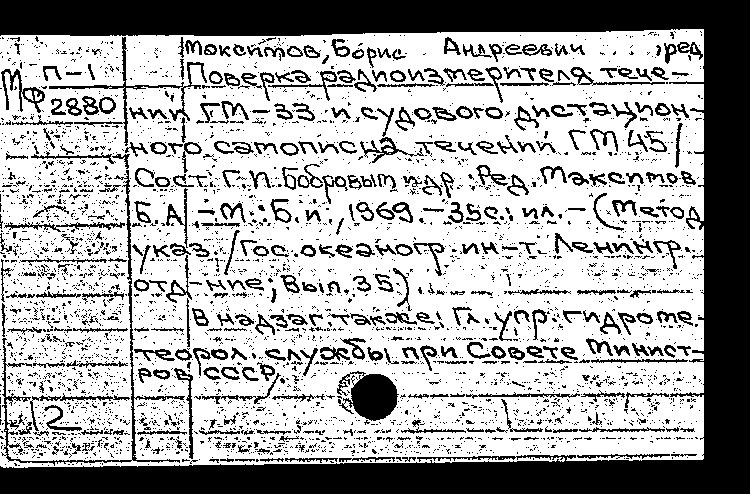 Максимов, Борис Андреевич ..., ред
П-1 Поверка радиоизмерителя тече-
МФ 2880 ний ГМ-33 и судового дистацион-
ного самописца течений ГМ 45/
Сост. Г.П. Бобровым и др. Ред. Максимов
Б.А. - М.: Б.и., 1969. - 35с.: ил. - (Метод.
указ. / Гос. океаногр. ин-т. Ленингр.
отд-ние; Вып. 35).
В надзаг. также: Гл. упр. гидроме-
теорол. службы при Совете Минист-
ров СССР.
12